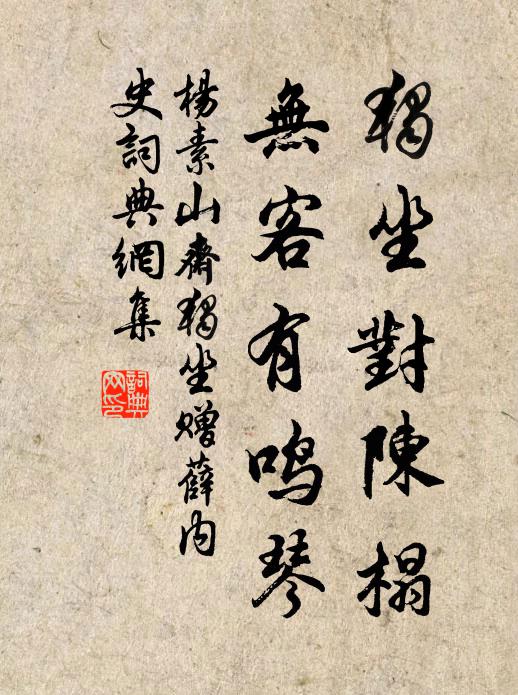 獨坐對陳榻
無客有鳴琴
楊素山齋獨坐贈薛內
史詞典網集
詞典
网印